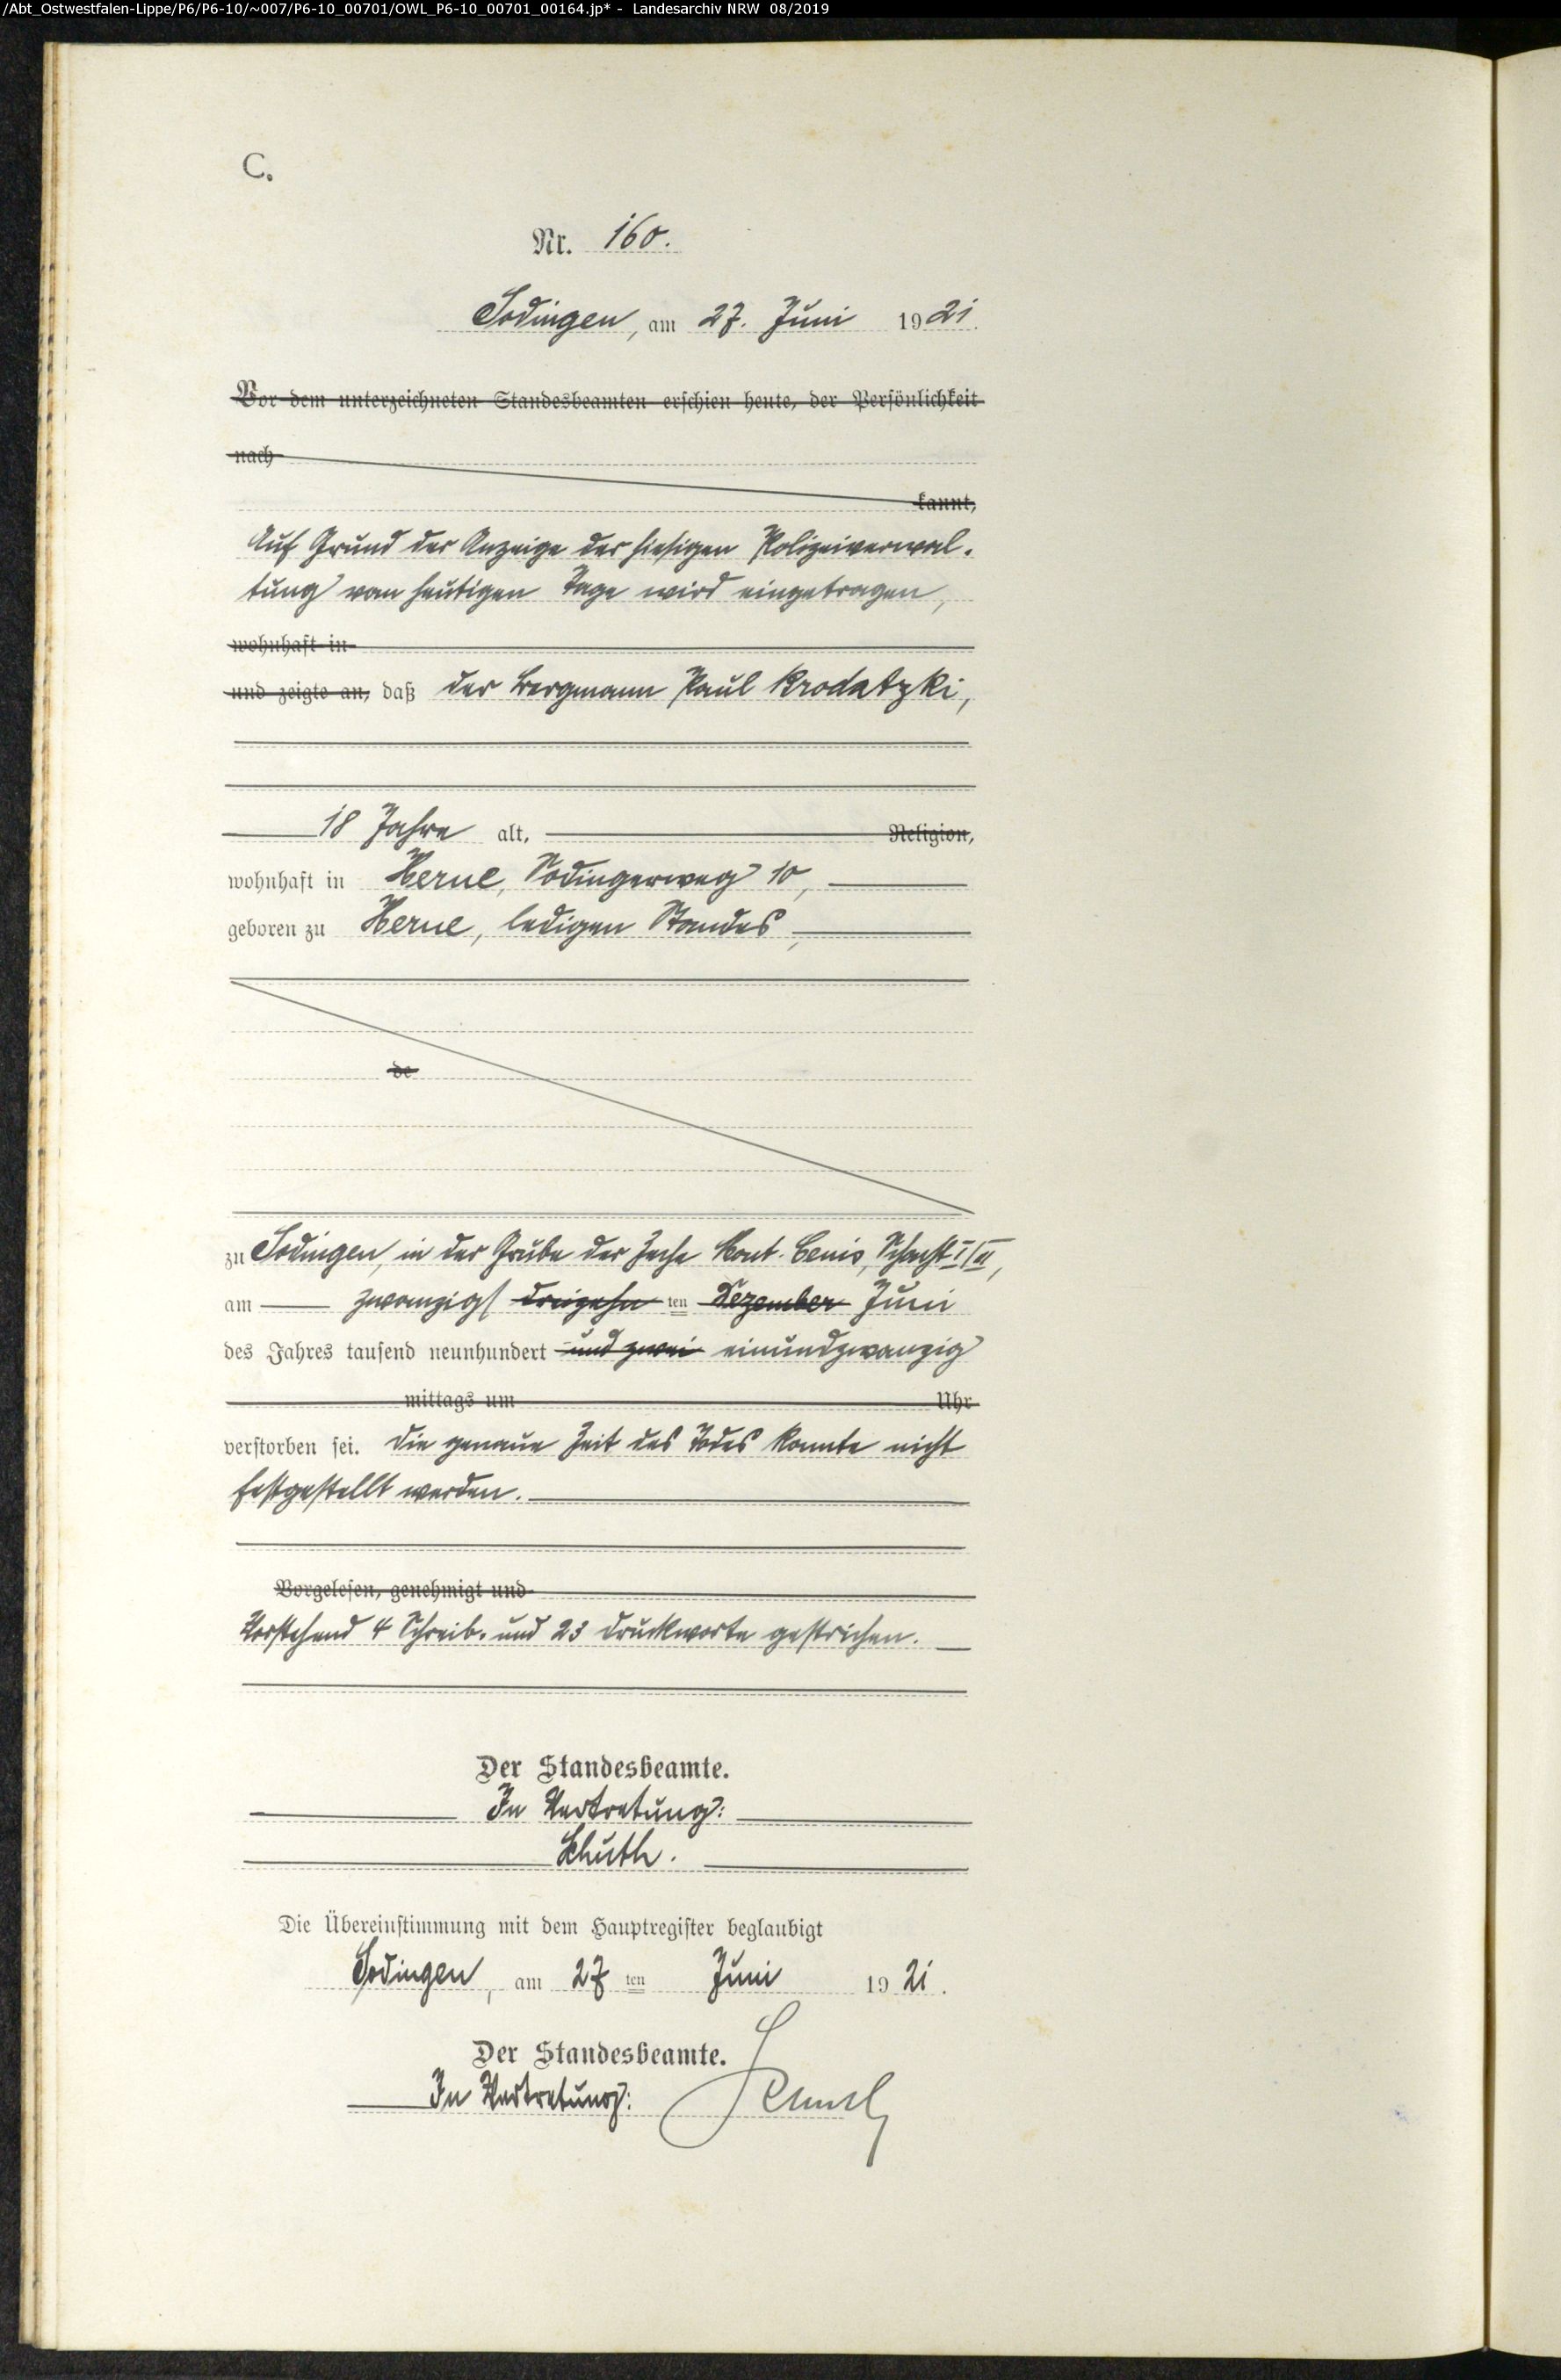 /Abt_Ostwestfalen-Lippe/P6/P6-10/~007/P6-10_00701/OWL_P6-10_00701_00164.jp* - Landesarchiv NRW 08/2019
C.
Nr. 160.
Sodingen, am 27. Juni 1921.
Vor dem unterzeichneten Standesbeamten erschien heute, der Persönlichkeit
nach
kannt,
Auf Grund der Anzeige der hiesigen Polizeiverwal-
tung vom heutigen Tage wird eingetragen,
wohnhaft in
und zeigte an, daß der Bergmann Paul Krodatzki,
18 Jahre alt, Religion,
wohnhaft in Herne, Sodingerweg 10,
geboren zu Herne, ledigen Standes,
de
zu Sodingen, in der Grube der Zeche Mont-Cenis, Schacht I/II,
am zwanzigs dreizehn ten Dezember Juni
des Jahres tausend neunhundert und zwei einundzwanzig
mittags um Uhr
verstorben sei. Die genaue Zeit des Todes konnte nicht
festgestellt werden.
Vorgelesen, genehmigt und
Vorstehend 4 Schreib- und 23 Druckworte gestrichen.
Der Standesbeamte.
In Vertretung:
Schuth.
Die Übereinstimmung mit dem Hauptregister beglaubigt
Sodingen, am 27 ten Juni 1921.
Der Standesbeamte.
In Vertretung: